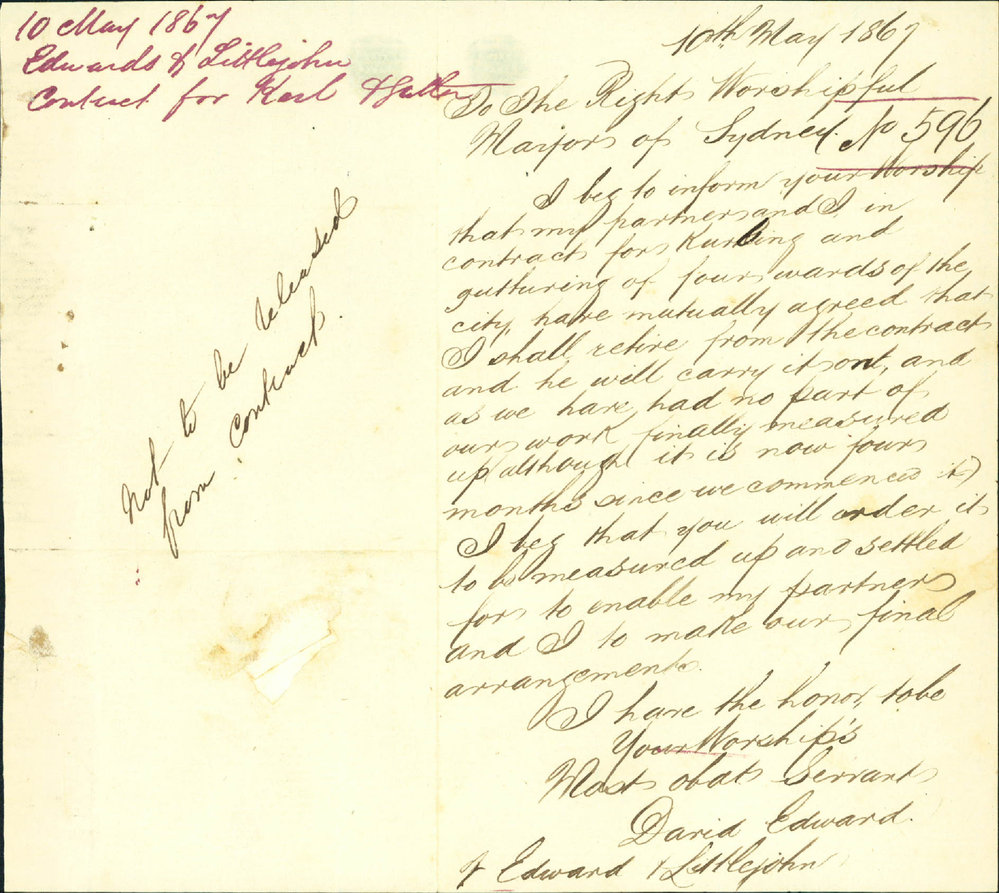 10 May 1867
Edwards & Littlejohn
Contract for Kerb & Gutter
Not to be released
from contract.
10th May 1867
To The Right Worshipful
Mayor of Sydney.
No 596
I beg to inform your Worship
that my partner and I in
contract for Kurbing and
gutturing of four wards of the
city, have mutually agreed that
I shall retire from the contract
and he will carry it ont, and
as we have had no part of
our work finally measured
up (although it is now four
months since we commenced it)
I beg that you will order it
to be measured up and settled
for to enable my partner
and I to make our final
arrangements.
I have the honor, to be
Your Worship's
Most obdt Servant
David Edward.
of Edward & Littlejohn